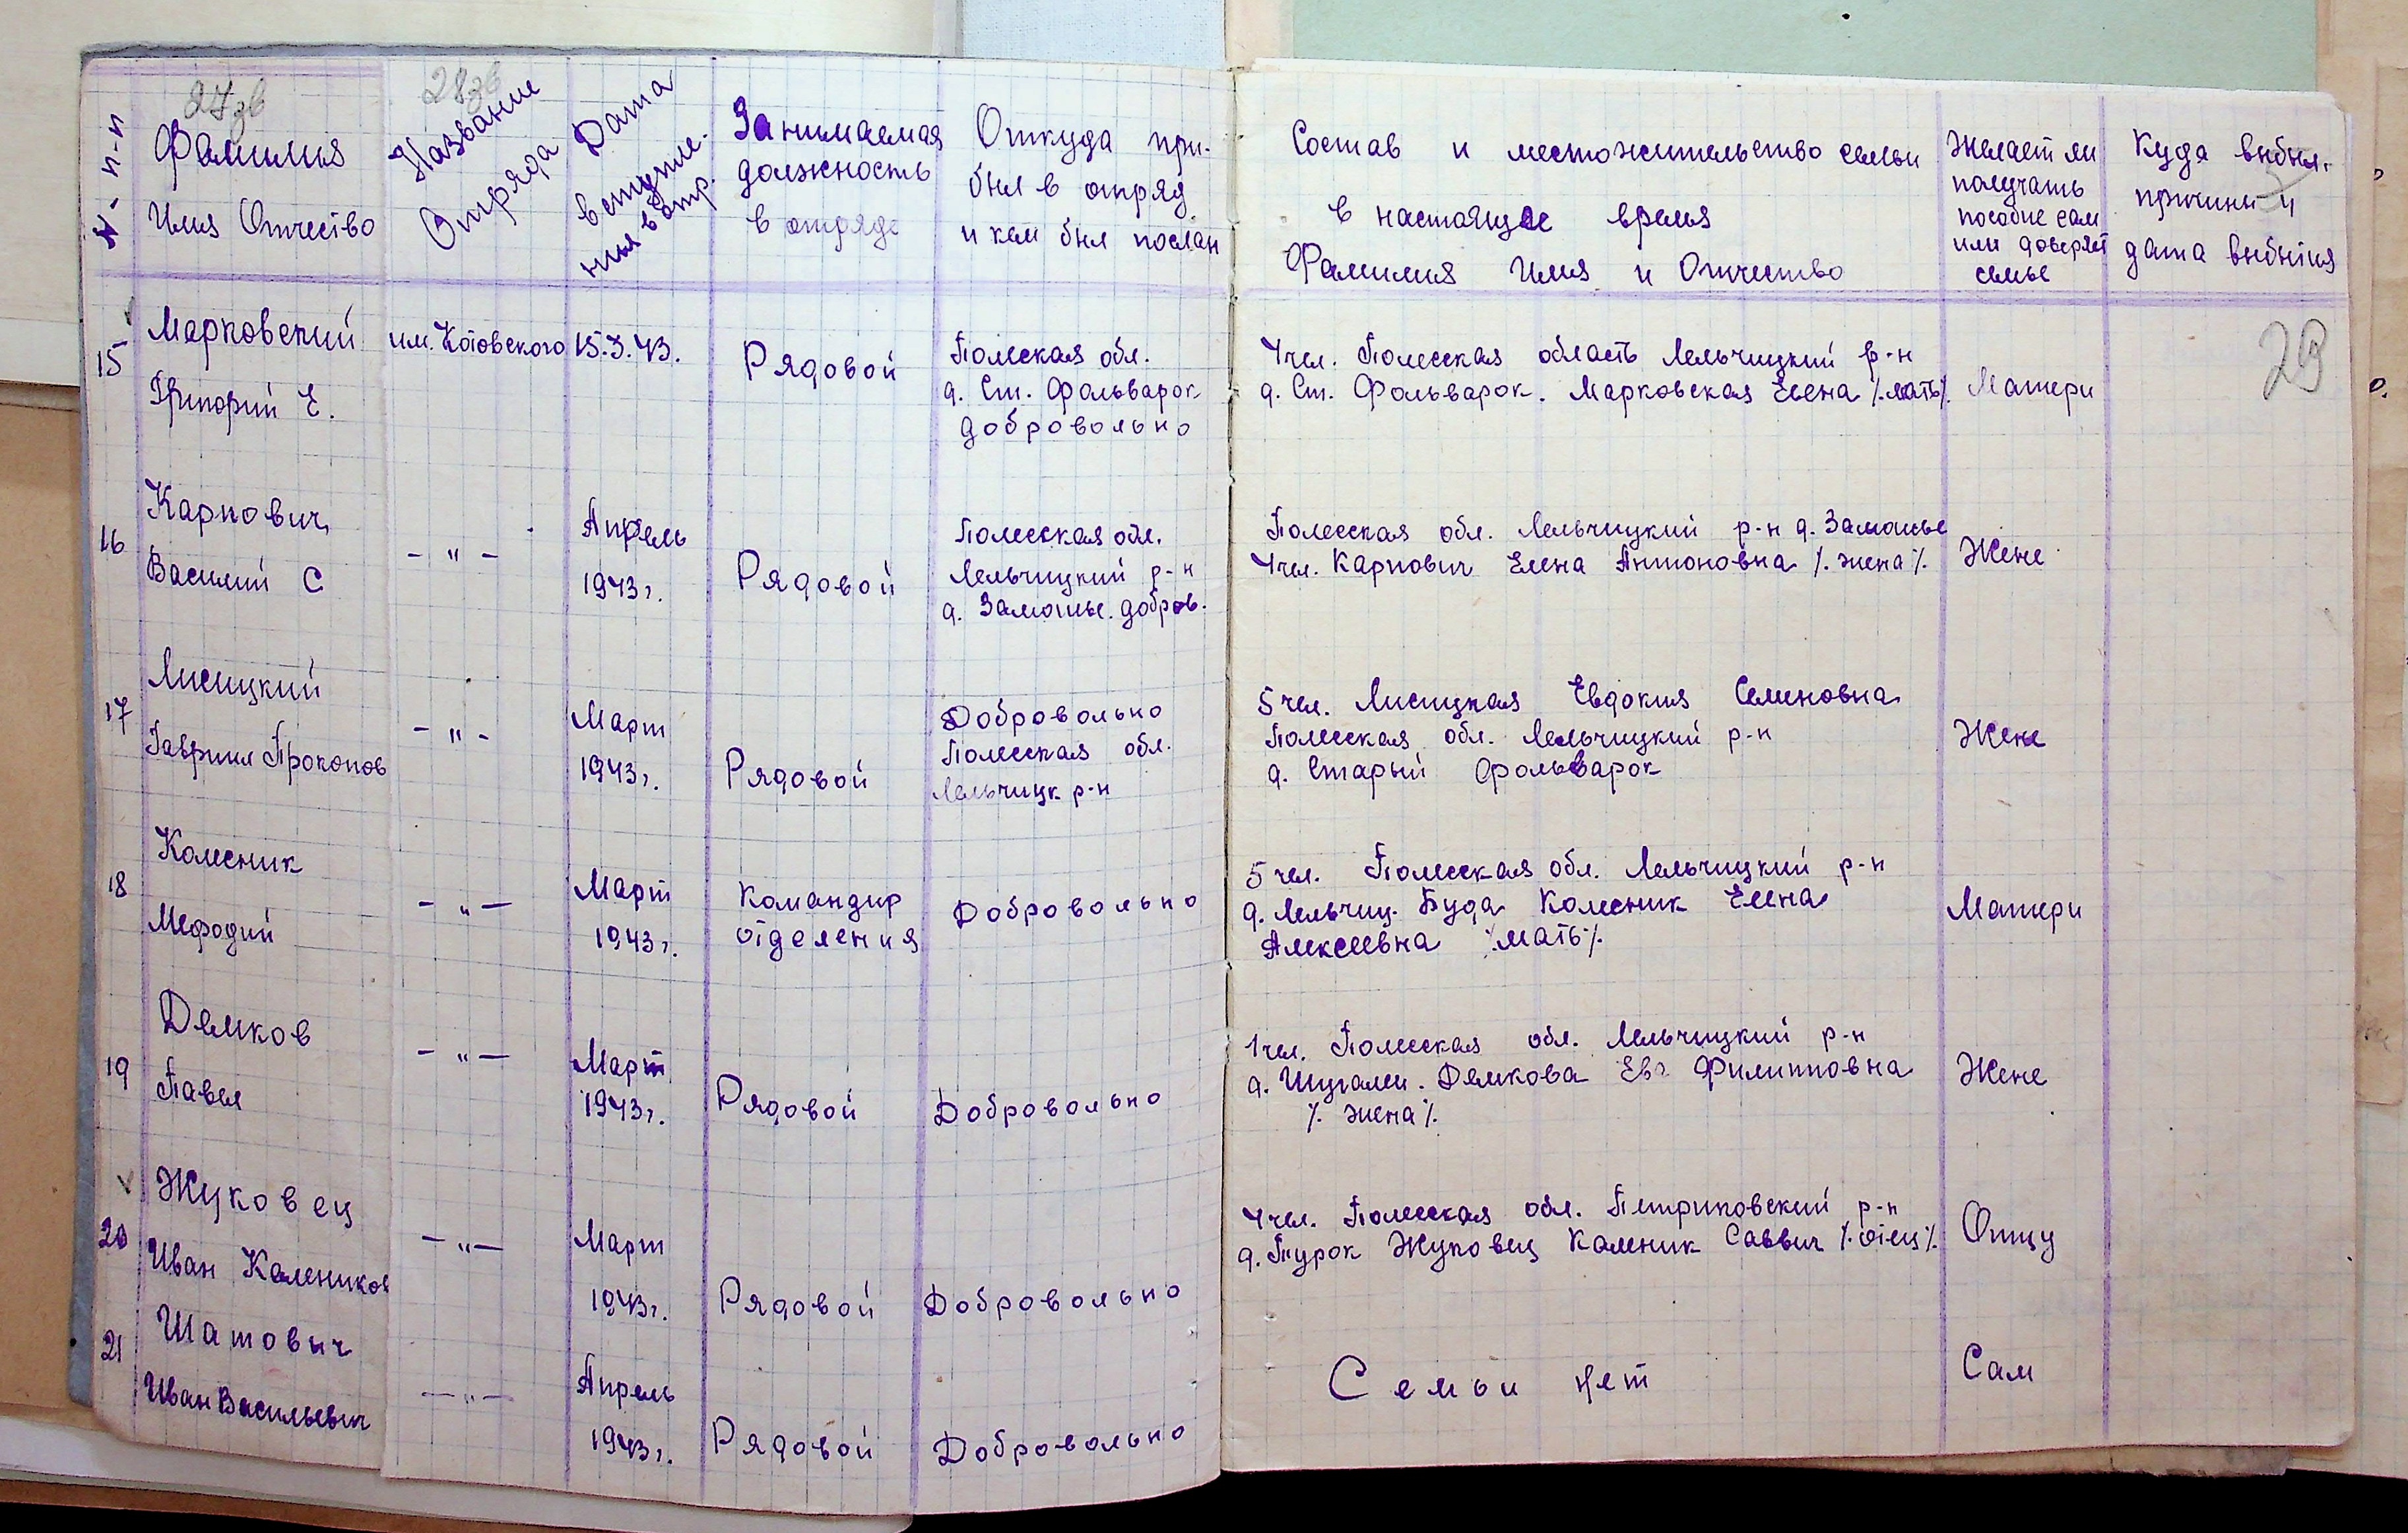 27об
28об
29
N- п-п
Фамилия
Имя Отчество
Название
Отряда
Дата
вступле-
ния в отр.
Занимаемая
должность
в отряде
Откуда при-
был в отряд
и кем был послан
Состав и местожительство семьи
в настоящее время
Фамилия Имя и Отчество
Желает ли
получать
пособие сам
или доверяет
семье
Куда выбыл.
причины и
дата выбытия
15
Марковский
Григорий Е.
им. Котовского
15.3.43.
Рядовой
Полесская обл.
д. Ст. Фольварок
добровольно
4 чел. Полесская область Лельчицкий р-н
д. Ст. Фольварок. Марковская Елена /.мать/.
Матери
16
Карпович
Василий С
- " -
Апрель
1943г.
Рядовой
Полесская обл.
Лельчицкий р-н
д. Замошье. добров.
Полесская обл. Лельчицкий р-н д. Замошье
4 чел. Карпович Елена Антоновна /. жена/.
Жене
17
Лисицкий
Гавриил Прокопов
- " -
Март
1943г.
Рядовой
Добровольно
Полесская обл.
Лельчицк р-н
5 чел. Лисицкая Евдокия Семеновна
Полесская обл. Лельчицкий р-н
д. Старый Фольварок
Жене
18
Колесник
Мефодий
- " -
Март
1943г.
Командир
отделения
Добровольно
5 чел. Полесская обл. Лельчицкий р-н
д. Лельчиц. Буда Колесник Елена
Алексеевна /.мать/.
Матери
19
Демков
Павел
- " -
Март
1943г.
Рядовой
Добровольно
1 чел. Полесская обл. Лельчицкий р-н
д. Шугалеи. Демкова Ева Филипповна
/. жена/.
Жене
20
Жуковец
Иван Калеников
- " -
Март
1943г.
Рядовой
Добровольно
4 чел. Полесская обл. Петриковский р-н
д. Турок Жуковец Каленик Саввич /.отец/.
Отцу
21
Шатовыч
Иван Васильевич
- " -
Апрель
1943г.
Рядовой
Добровольно
Семьи нет
Сам